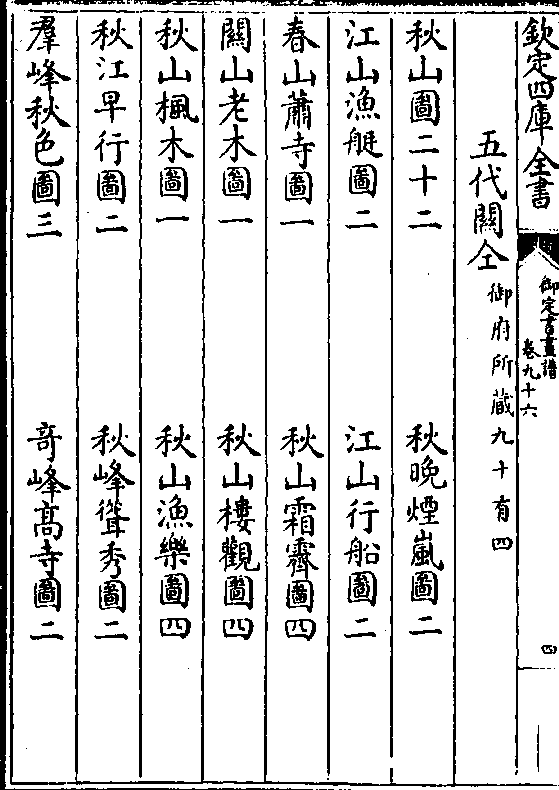 欽定四庫全書
御定書畫譜
卷九十六
四
五代關仝御府所藏九十有四
秋山圖二十二 秋晚煙嵐圖二
江山漁艇圖二 江山行船圖二
春山蕭寺圖一 秋山霜霽圖四
關山老木圖一 秋山樓觀圖四
秋山楓木圖一 秋山漁樂圖四
秋江早行圖二 秋峰聳秀圖二
羣峰秋色圖三 竒峰髙寺圖二